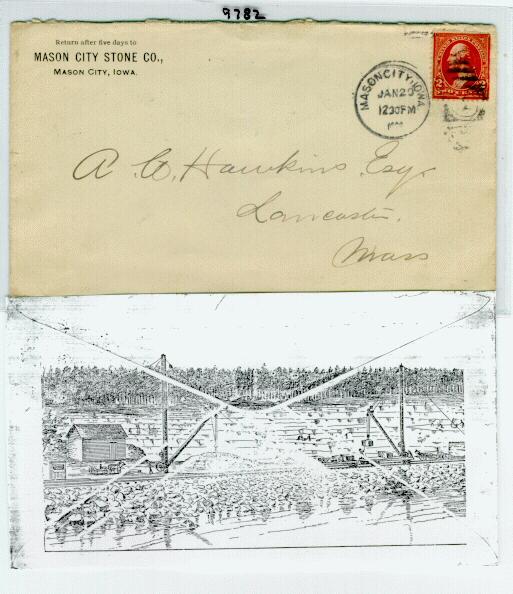 9782
Return after five days to
MASON CITY STONE CO.,
MASON CITY, IOWA.
MASON CITY, IOWA.
JAN 20
12 30 PM
2 2
A. W. Hawkins Esq.
Lancaster.
Mass